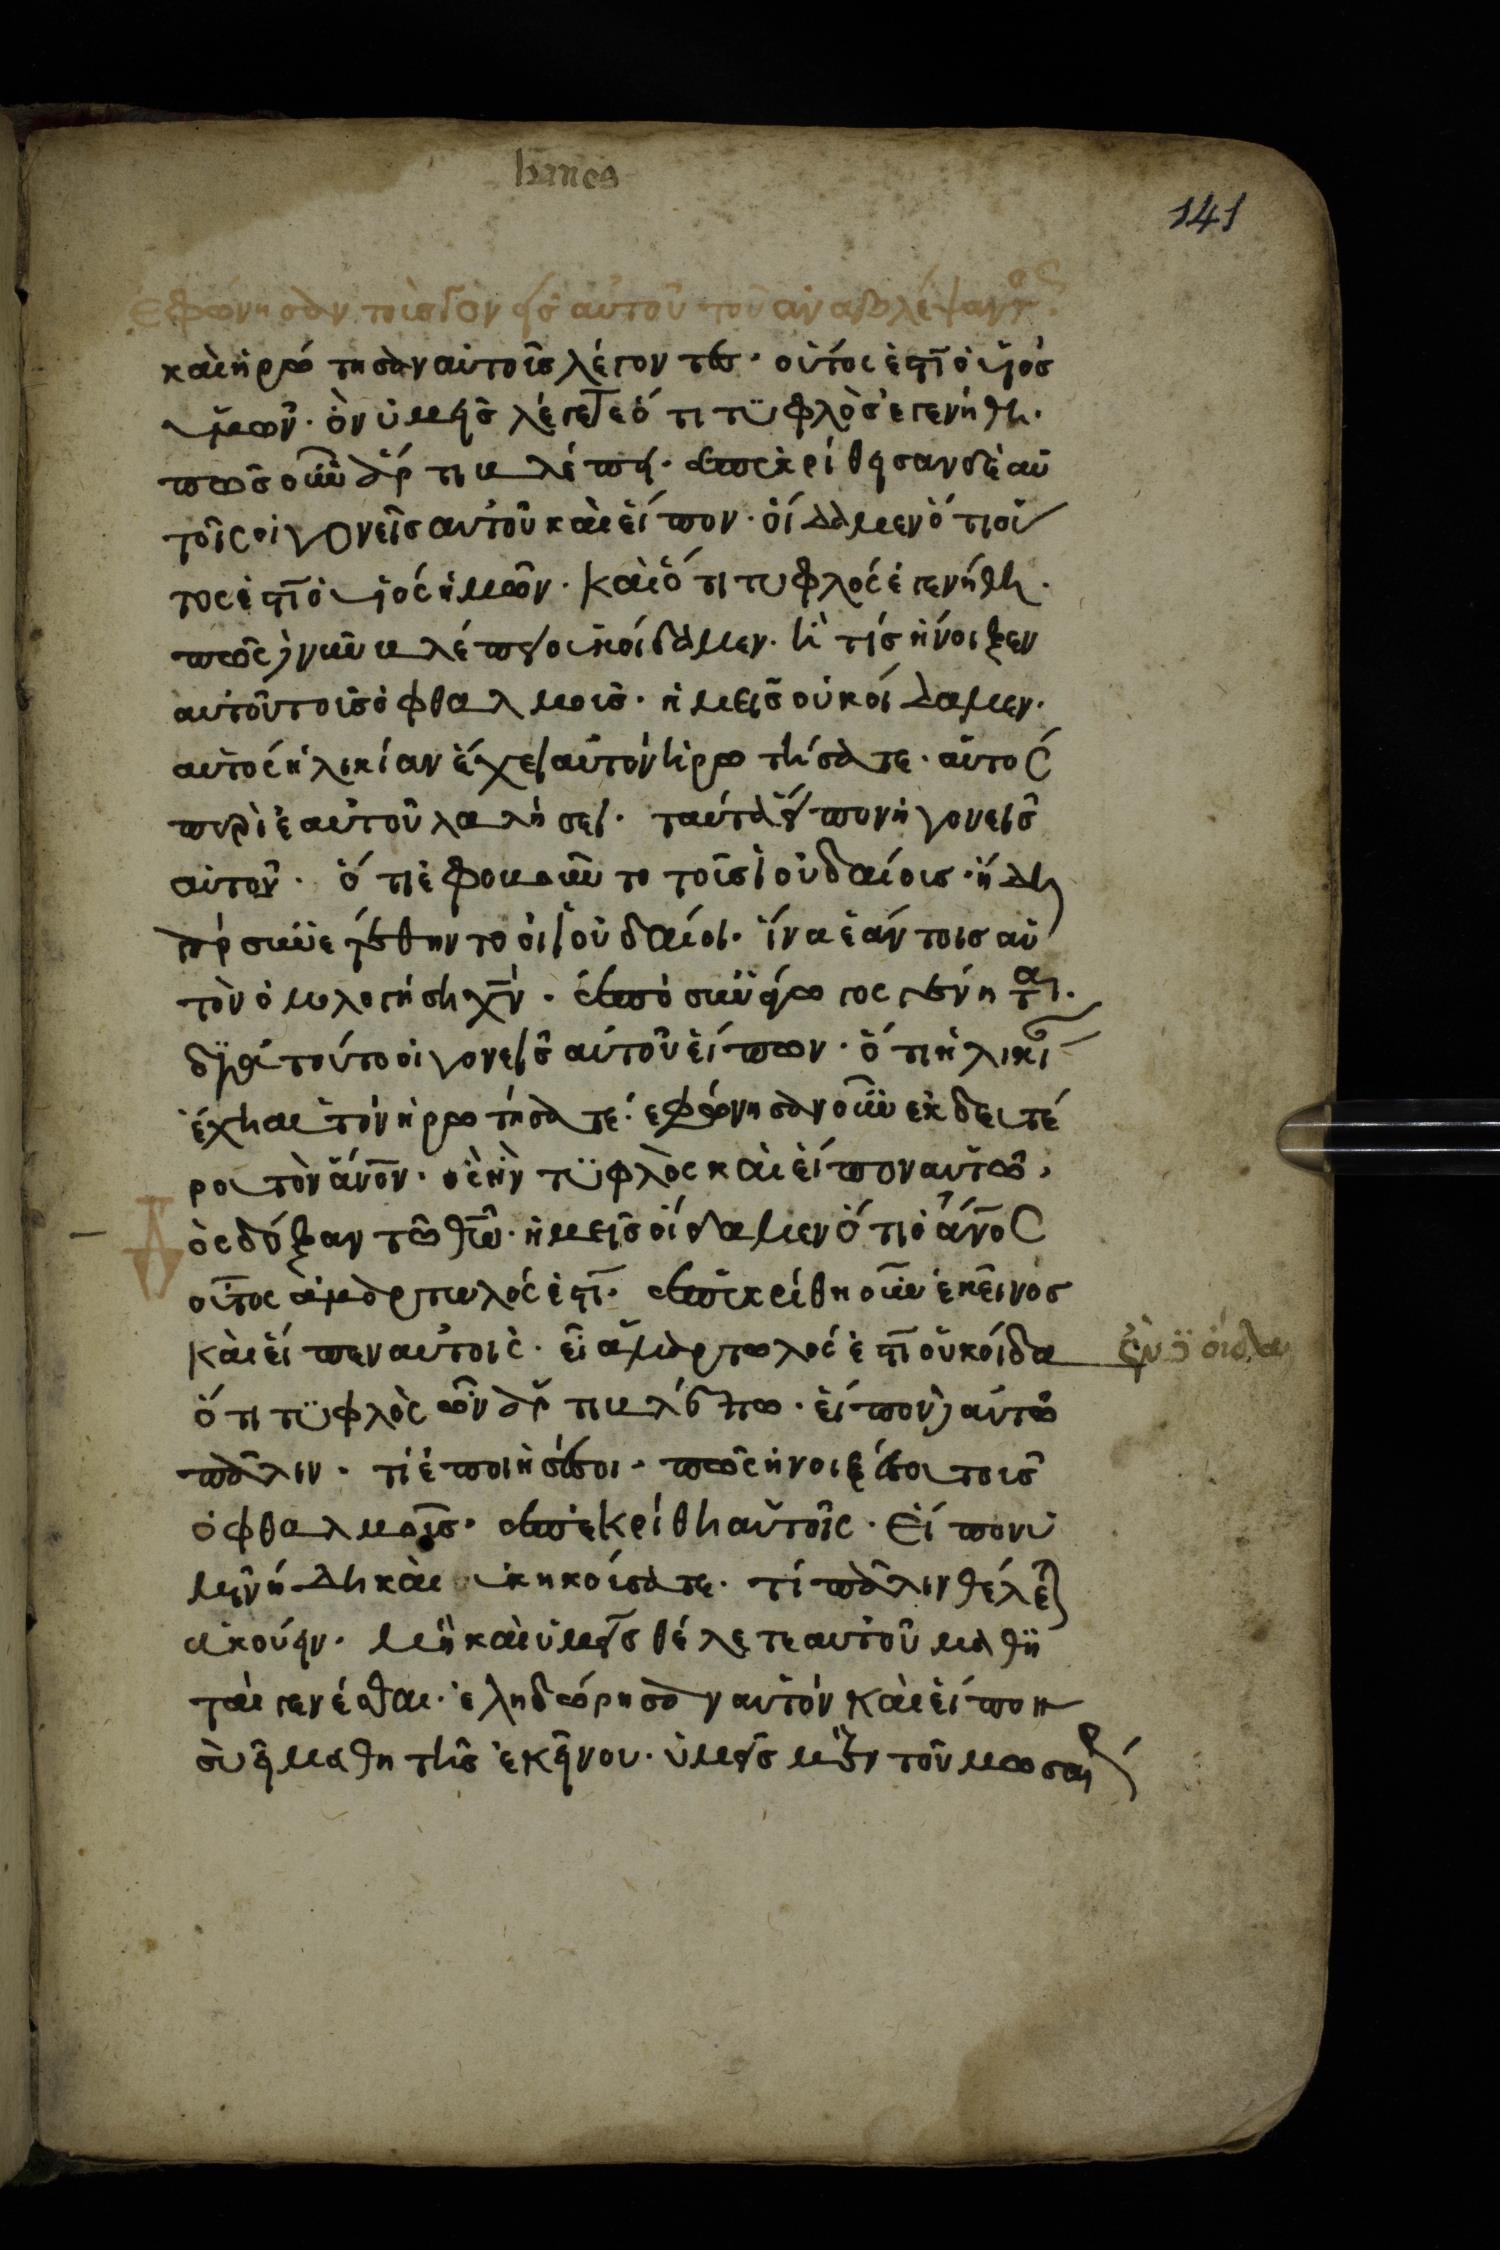 141
ἐφώνησαν τοὺς γονεῖς αὐτοῦ τοῦ ἀναβλέψαντος.
καὶ ἠρώτησαν αὐτοὺς λέγοντες· οὗτος ἐστὶ ὁ υἱὸς
ὑμῶν· ὃν ὑμεῖς λέγετε ὅτι τϋφλὸς ἐγενήθη·
πῶς οὖν ἄρτι βλέπει· ἀπεκρίθησαν δὲ αὐ
τοῖς οἱ γονεῖς αὐτοῦ καὶ εἶπον· οἴδαμεν ὅτι οὗ
τος ἐστὶ ὁ υἱός ἡμῶν· καὶ ὅτι τυφλός ἐγενήθη·
πῶς δὲ νῦν βλέπει οὐκ οἴδαμεν· ἢ τίς ἤνοιξεν
αὐτοῦ τοὺς ὀφθαλμοὺς· ἡμεῖς οὐκ οἴδαμεν·
αὐτός ἡλικίαν ἔχει αὐτόν ἠρωτήσατε· αὐτός
περὶ ἑαυτοῦ λαλήσει· ταύτα εἶπον ἡ γονεῖς
αὐτοῦ· ὅτι ἐφοβοῦντο τοὺς ἰουδαίους· ἤδη
γάρ συνετέθηντο οἱ ἰουδαίοι· ἵνα ἐάν τοις αὐ
τὸν ὁμολογήση χν· ἀποσυνάγωγος γένηται·
διὰ τούτο οι γονεῖς αὐτοῦ εἶπων· ὅτι ἡλικί
ἔχη αὐτόν ἠρωτήσατε· ἐφώνησαν οὖν ἐκ δευτέ
ρου τὸν ἄνον· ὃς ἦν τϋφλὸς καὶ εἶπον αὐτῶ·
δὸς δόξαν τῶ θῶ· ἡμεῖς οἴδαμεν ὅτι ὁ ἄνος
οὗτος ἁμαρτωλός ἐστὶ· ἀπεκρίθη οὖν ἐκεῖνος
καὶ εἶπεν αὐτοῖς· εἰ ἁμαρτωλός ἐστὶ οὐκ οἶδα
ἓν οἶδα
ὅτι τϋφλὸς ὢν ἄρτι βλέπω· εἶπον δὲ αὐτῶ
πάλιν· τί ἐποίησέ σοι· πῶς ἤνοιξέ σου τοὺς
ὀφθαλμοὺς· ἀπεκρίθη αὐτοῖς· Εἶπον ὑ
μῖν ἤδη καὶ οὐκ ηκούσατε· τί πάλιν θέλετε
ἀκούειν· μὴ καὶ ὑμεῖς θέλετε αὐτοῦ μαθη
ταὶ γενέσθαι· ἐληδώρησαν αὐτόν καὶ εἶπον
σὺ εἶ μαθητῆς ἐκείνου· ὑμεῖς μὲν τοῦ μωσαὶ